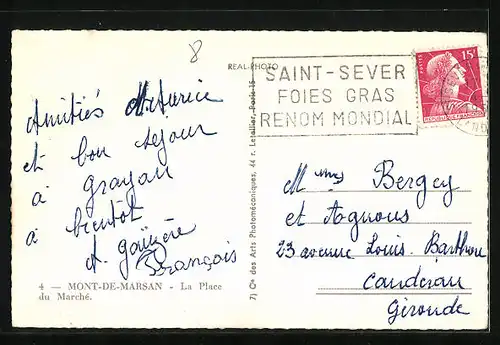 8
REAL-PHOTO
SAINT-SEVER
FOIES GRAS
RENOM MONDIAL
15F
POSTES
REPUBLIQUE FRANÇAISE
Amitiés
et bon séjour
à Grayan
à bientôt
François
4 — MONT-DE-MARSAN - La Place
du Marché.
7) Cie des Arts Photomécaniques, 44 r. Letellier, Paris 15
Mmes Bergey
et Agnous
23 avenue Louis Barthou
Caudéran
Gironde